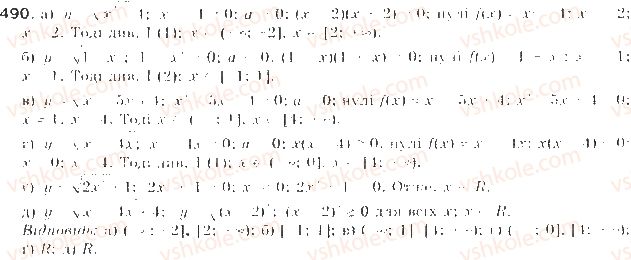 490. а) y = √x² − 4; x² − 4 ≥ 0; a > 0; (x − 2)(x + 2) ≥ 0; нулі f(x) = x² − 4: x = 2;
x = −2. Тоді див. 1 (2); x ∈ (−∞; −2], x ∈ [2; +∞).
б) y = √1 − x²; 1 − x² ≥ 0; a < 0. (1 − x)(1 + x) ≥ 0; нулі f(x) = 1 − x²: x = 1;
x = −1. Тоді див. 1 (2); x ∈ [−1; 1].
в) y = √x² − 5x + 4; x² − 5x + 4 ≥ 0; a > 0; нулі f(x) = x² − 5x + 4: x² − 5x + 4 = 0;
x = 1, x = 4. Тоді x ∈ (−∞; 1], x ∈ [4; +∞).
г) y = √x² − 4x; x² − 4x ≥ 0; a > 0; x(x − 4) ≥ 0. нулі f(x) = x² − 4x; x(x − 4) = 0;
x = 0; x = 4. Тоді див. 1 (1); x ∈ (−∞; 0], x ∈ [4; +∞).
ґ) y = √2x² + 1; 2x² + 1 ≥ 0; 2x² + 1 > 0. Отже, x ∈ R.
д) y = √x² − 4x + 4; y = √(x − 2)²; (x − 2)² ≥ 0 для всіх x; x ∈ R.
Відповідь: а) (−∞; −2], [2; +∞); б) [−1; 1]; в) (−∞; 1], [4; +∞); г) (−∞; 0], [4; +∞);
ґ) R; д) R.